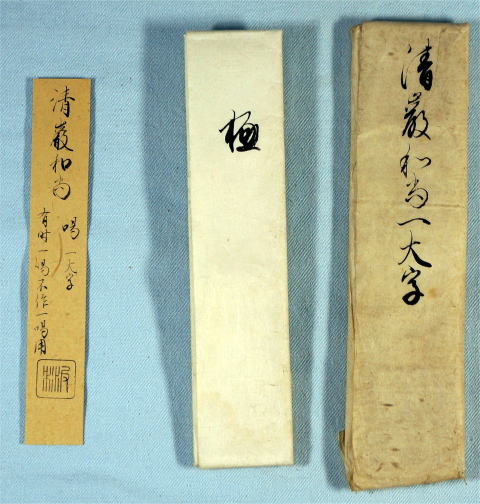 清巖和尚一大字
極
清巖和尚
喝一大字
有時一喝不作一喝用